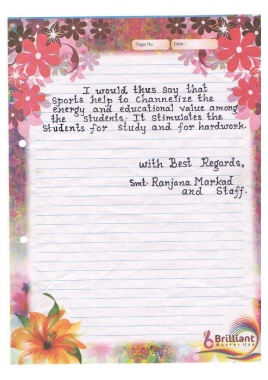 Page No.
Date :
I would thus say that
Sports help to channelize the
energy and educational value among
the students. It stimulates the
students for study and for hardwork.
with Best Regards,
Smt. Ranjana Markad
and Staff.
Brilliant